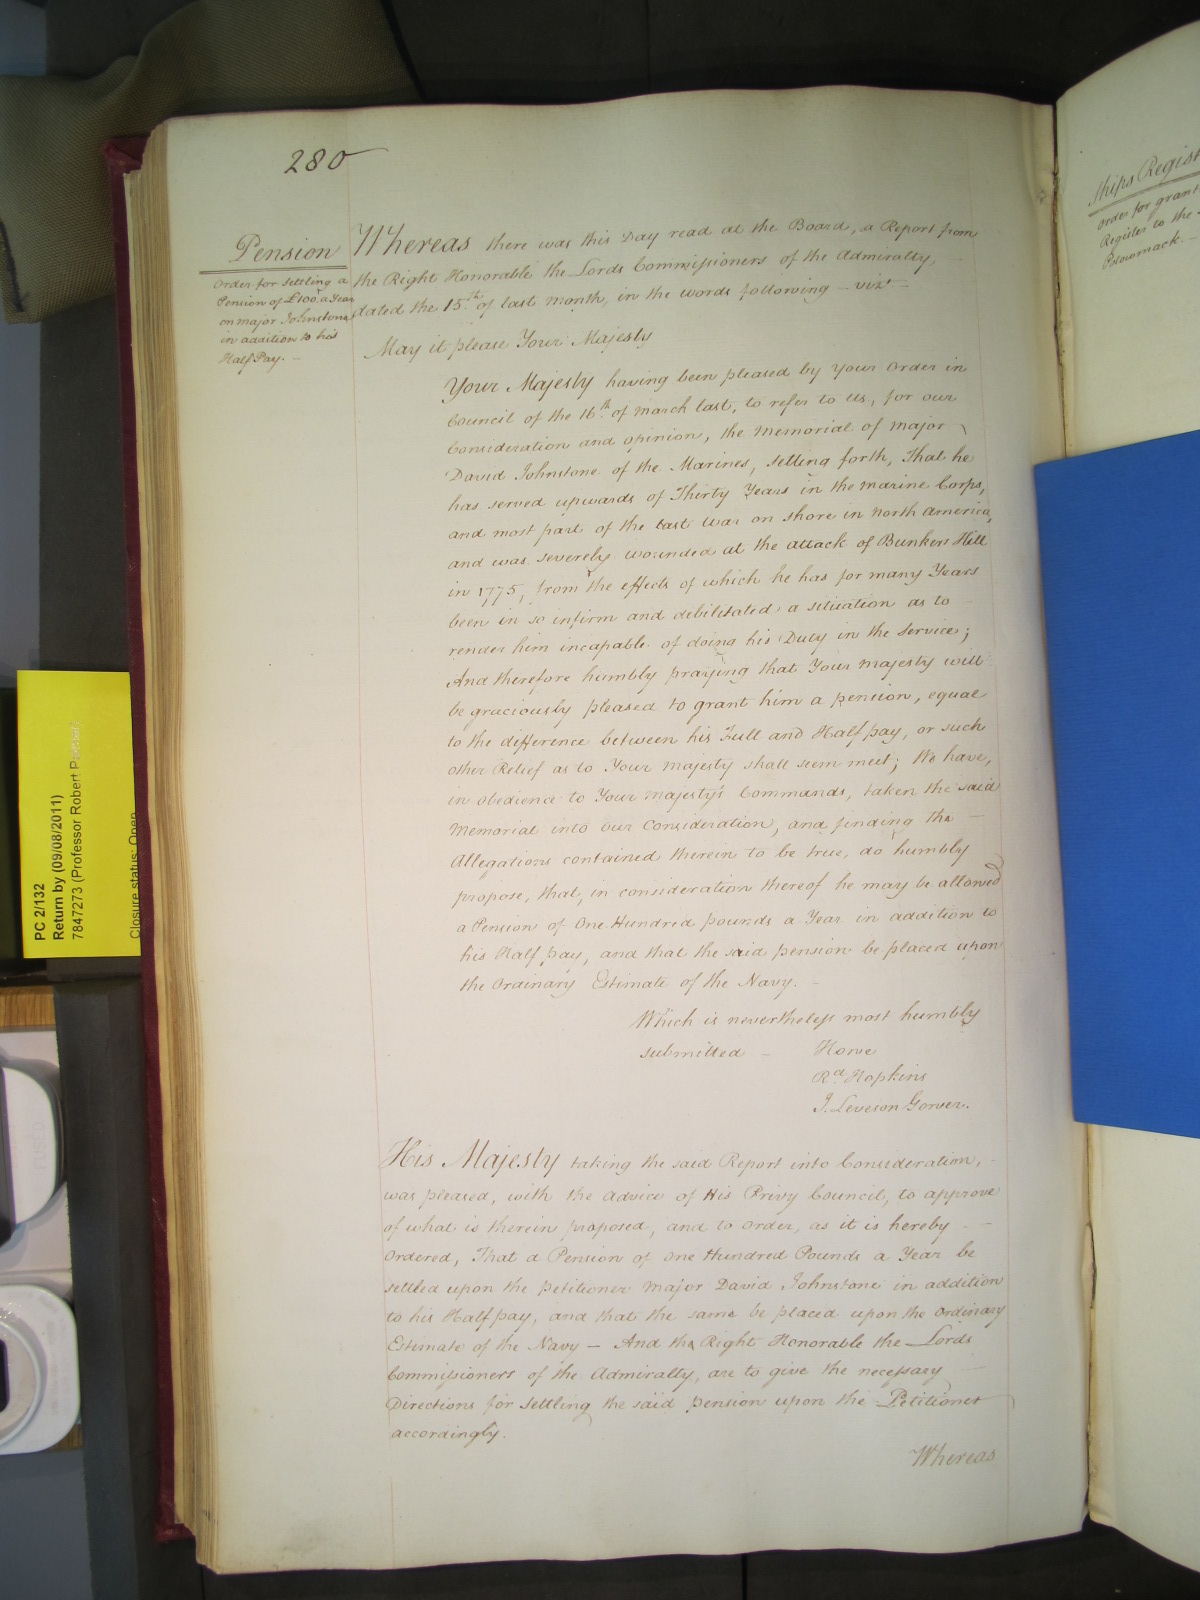 280
Pension
Order for settling a
Pension of £100 a Year
on major Johnstone
in addition to his
Half Pay. —
Whereas there was this Day read at the Board, a Report from
the Right Honorable the Lords Commissioners of the Admiralty,
dated the 15th. of last month, in the words following – viz.t –
May it please Your Majesty
Your Majesty having been pleased by your Order in
Council of the 16th. of March last, to refer to us, for our
Consideration and opinion, the Memorial of Major
David Johnstone of the Marines, setting forth, That he
has served upwards of Thirty Years in the Marine Corps,
and most part of the last War on shore in North America,
and was severely wounded at the attack of Bunkers Hill
in 1775, from the effects of which he has for many Years
been in so infirm and debilitated a situation as to
render him incapable of doing his Duty in the Service;
And therefore humbly praying that Your Majesty will
be graciously pleased to grant him a pension, equal
to the difference between his Full and Half pay, or such
other Relief as to Your Majesty shall seem meet; We have,
in obedience to Your Majesty's Commands, taken the said
Memorial into our Consideration, and finding the
Allegations contained therein to be true, do humbly
propose, that, in consideration thereof he may be allowed
a Pension of One Hundred pounds a Year in addition to
his Half pay, and that the said pension be placed upon
the Ordinary Estimate of the Navy. –
Which is nevertheless most humbly
submitted –
Howe
Rd. Hopkins
J. Leveson Gower.
His Majesty taking the said Report into Consideration,
was pleased, with the advice of His Privy Council, to approve
of what is therein proposed, and to order, as it is hereby
Ordered, That a Pension of One Hundred Pounds a Year be
settled upon the Petitioner Major David Johnstone in addition
to his Half pay, and that the same be placed upon the Ordinary
Estimate of the Navy – And the Right Honorable the Lords
Commissioners of the Admiralty, are to give the necessary
Directions for settling the said pension upon the Petitioner
accordingly.
Whereas
Ships Regist
Order for grant
Register to the
PC 2/132
Return by (09/08/2011)
7847273 (Professor Robert
Closure status: Open